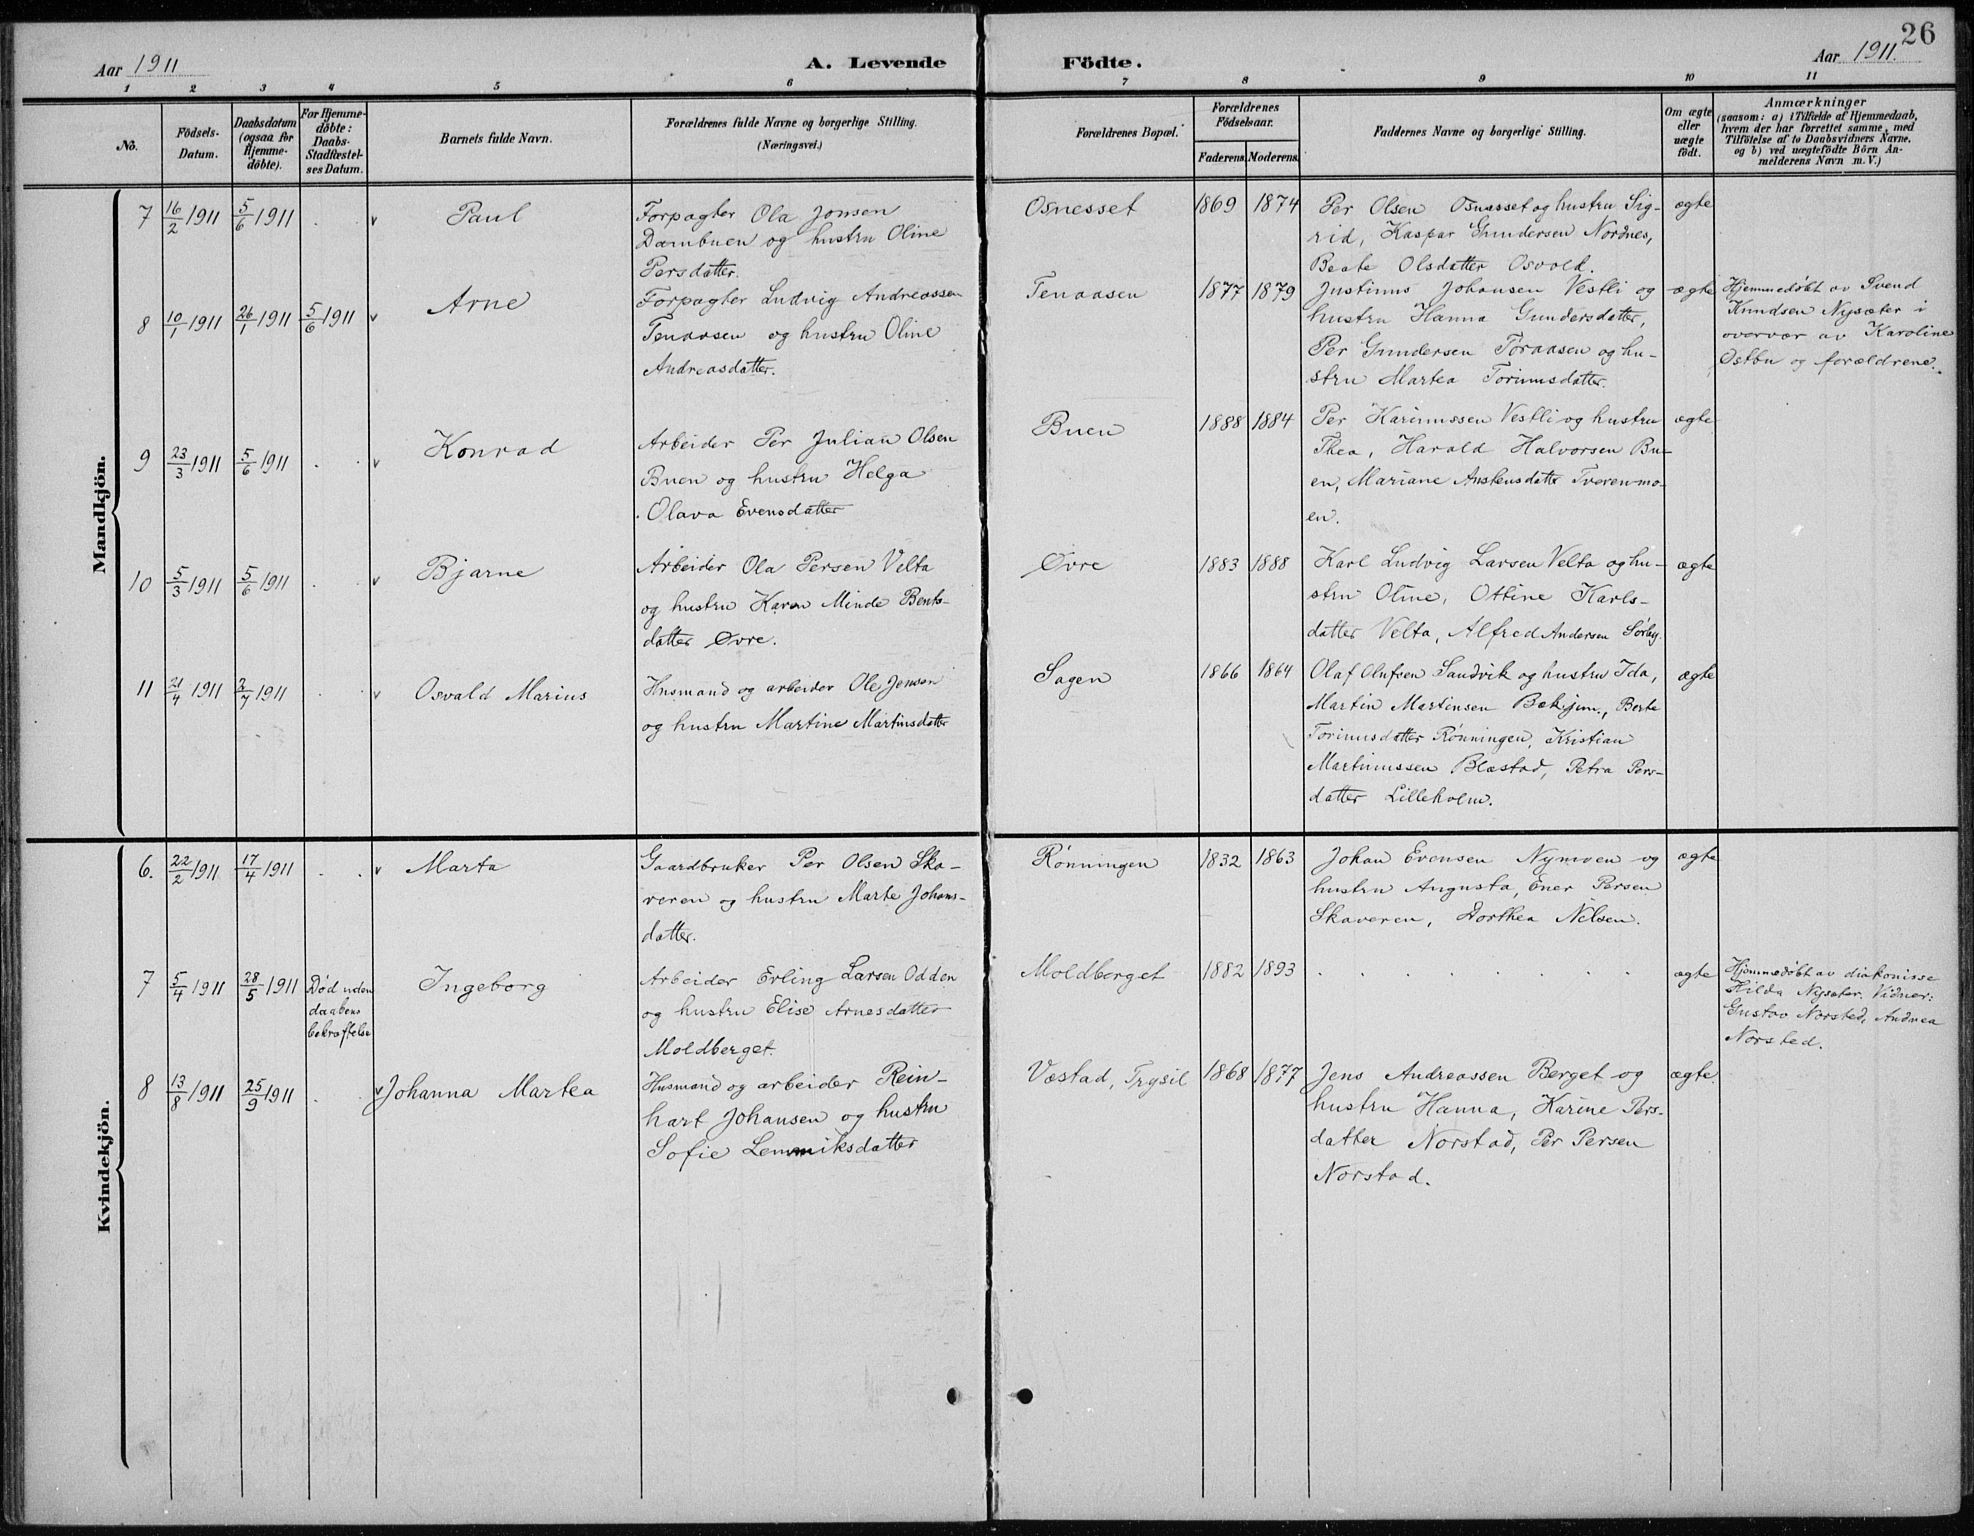 26
Aar 1911
A. Levende
Födte.
Aar 1911.
1 2 3 4 5 6 7 8 9 10 11
No.
Födsels-
Datum.
Daabsdatum
(ogsaa for
Hjemme-
döbte).
For Hjemme-
döbte:
Daabs-
Stadfæstel-
ses Datum.
Barnets fulde Navn.
Forældrenes fulde Navne og borgerlige Stilling.
(Næringsvei.)
Forældrenes Bopæl.
Forældrenes
Födselsaar.
Faderens. Moderens.
Faddernes Navne og borgerlige Stilling.
Om ægte
eller
uægte
födt.
Anmærkninger
(saasom: a) i Tilfælde af Hjemmedaab,
hvem der har forrettet samme, med
Tilföielse af to Daabsvidners Navne,
og b) ved uægtefödte Börn An-
melderens Navn m. V.)
Mandkjön.
7 16/2 1911 5/6 1911 . v Paul
Forpagter Ola Jonsen
Dambuen og hustru Oline
Persdatter.
Osnesset 1869 1874
Per Olsen Osnesset og hustru Sig-
rid, Kaspar Gundersen Nordnes,
Beate Olsdatter Osvold.
ægte
8 10/1 1911 26/1 1911 5/6 1911 v Arne
Forpagter Ludvig Andreassen
Tenaasen og hustru Oline
Andreasdatter.
Tenaasen 1877 1879
Justinus Johansen Vestli og
hustru Hanna Gundersdatter,
Per Gundersen Toraasen og hu-
stru Martea Torinusdatter.
ægte
Hjemmedøbt av Svend
Knudsen Nysæter i
overvær av Karoline
Østbu og forældrene.
9 23/3 1911 5/6 1911 . v Konrad
Arbeider Per Julian Olsen
Buen og hustru Helga
Olava Evensdatter
Buen 1888 1884
Per Karinussen Vestli og hustru
Thea, Harald Halvorsen Bu-
en, Mariane Austensdatter Tverenmo-
en.
ægte
10 5/3 1911 5/6 1911 . v Bjarne
Arbeider Ola Persen Velta
og hustru Karen Minde Bents-
datter Øvre.
Øvre 1883 1888
Karl Ludvig Larsen Velta og hu-
stru Oline, Ottine Karls-
datter Velta, Alfred Andersen Sørby.
ægte
11 21/4 1911 2/7 1911 . v Osvald Marius
Husmand og arbeider Ole Jensen
og hustru Martine Martinsdatter
Sagen 1866 1864
Olaf Olufsen Sandvik og hustru Ida,
Martin Martinsen Bækjim., Berte
Torinusdatter Rønningen, Kristian
Martinussen Blæstad, Petra Pers-
datter Lilleholm.
ægte
Kvindekjön.
6. 22/2 1911 17/4 1911 . . v Marta
Gaardbruker Per Olsen Ska-
veren og hustru Marte Johans-
datter.
Rønningen 1832 1863
Johan Evensen Nymoen og
hustru Augusta, Ener Persen
Skaveren, Dorthea Nilsen.
ægte
7 5/4 1911 28/5 1911 Død uden
daabens
bekræftelse
Ingeborg
Arbeider Erling Larsen Odden
og hustru Elise Arnesdatter
Moldberget.
Moldberget 1882 1893
. . . . . . . .
ægte
Hjemmedøbt av diakonisse
Hilda Nysæter. Vidner:
Gustav Norsted, Andrea
Norsted.
8 13/8 1911 25/9 1911 . . v Johanna Martea
Husmand og arbeider Rein-
hart Johansen og hustru
Sofie Lemmiksdatter
Væstad, Trysil 1868 1877
Jens Andreassen Berget og
hustru Hanna, Karine Pers-
datter Norstad, Per Persen
Norstad.
ægte.